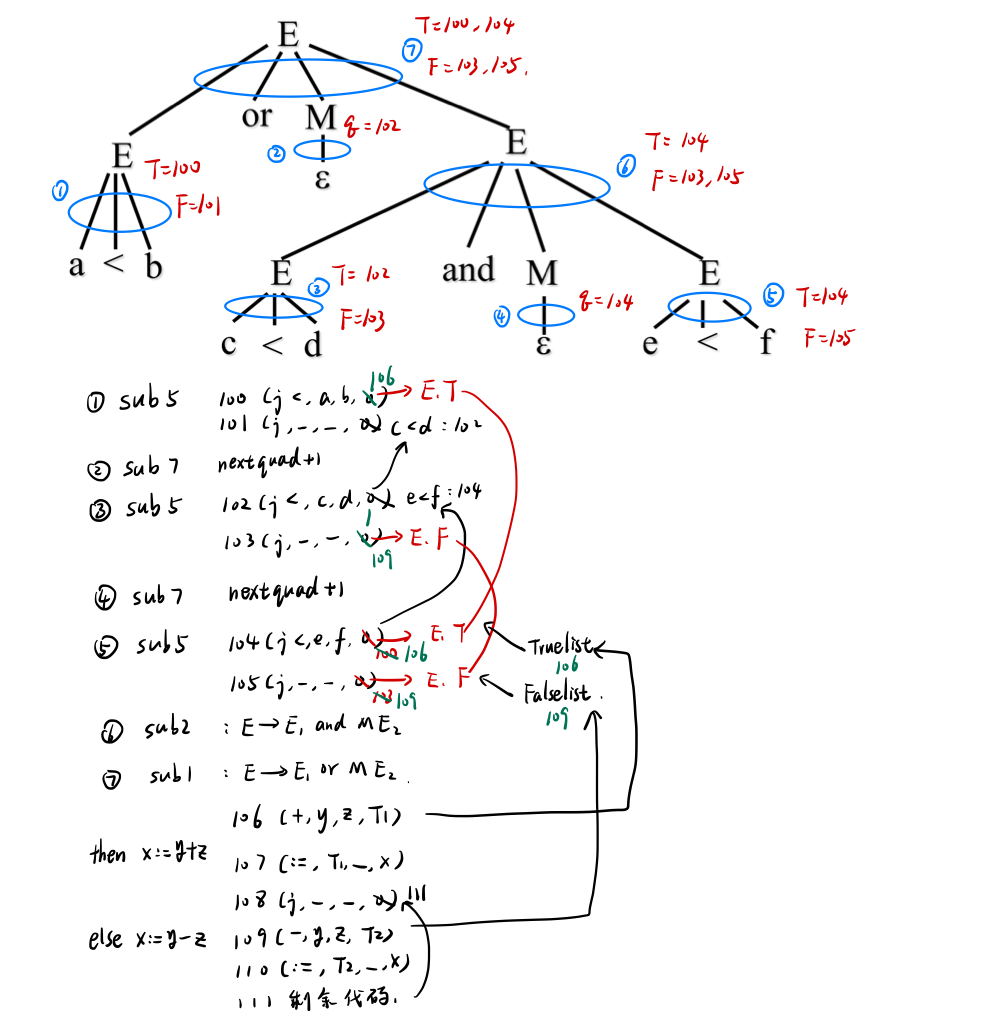 E
T=100,104
⑦
F=103,105.
or
M
q=102
②
ε
E
T=100
①
F=101
a < b
E
T=104
⑥
F=103,105
E
③
T=102
F=103
c < d
and
M
q=104
④
ε
E
⑤
T=104
F=105
e < f
106
① sub5 100 (j<,a,b,0) → E.T
101 (j,-,-,0) c<d:102
② sub7 nextquad+1
③ sub5 102 (j<,c,d,0) e<f:104
103 (j,-,-,0) → E.F
109
④ sub7 nextquad+1
⑤ sub5 104 (j<,e,f,0) → E.T
100 106
Truelist
106
105 (j,-,-,0) → E.F
103 109
Falselist.
109
⑥ sub2 : E→E₁ and M E₂
⑦ sub1 : E→E₁ or M E₂.
106 (+,y,z,T₁)
then x:=y+z
107 (:=,T₁,-,x)
108 (j,-,-,0) 111
else x:=y-z 109 (-,y,z,T₂)
110 (:=,T₂,-,x)
111 剩余代码.